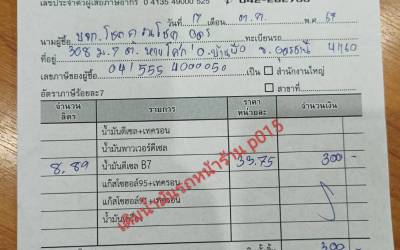 เลขประจำตัวผู้เสียภาษีอากร 0 4135 49000 525
วันที่ 17 เดือน ต.ค. พ.ศ.
นามผู้ซื้อ บจก. โชค
ทะเบียนรถ
ที่อยู่ 308 ม.7 ต. อ. จ. อุดรธานี 41160
เลขภาษีของผู้ซื้อ 041 555 4000050 เป็น สำนักงานใหญ่
อัตราภาษีร้อยละ7 สาขาที่
จำนวน ลิตร รายการ ราคา หน่วยละ จำนวนเงิน
น้ำมันดีเซล+เทครอน
น้ำมันพาวเวอร์ดีเซล
8.89 น้ำมันดีเซล B7 33.75 300 -
แก๊สโซฮอล์95+เทครอน
แก๊สโซฮอล์91+เทครอน
เติมน้ำมันรถหน้าร้าน p015
300 -